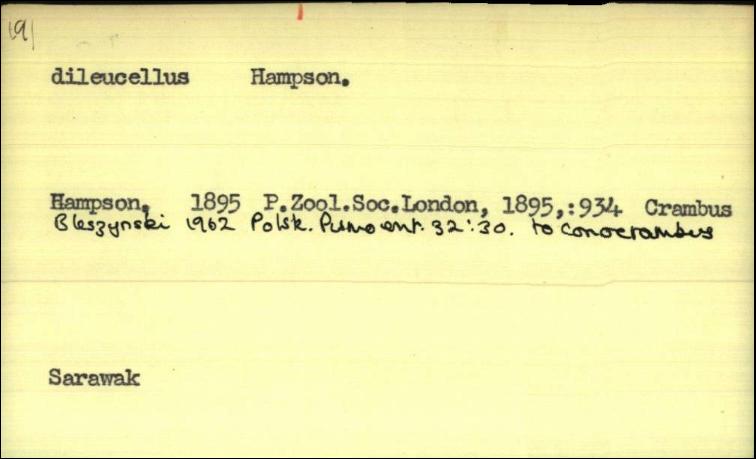 191
dileucellus Hampson.
Hampson, 1895 P.Zool.Soc.London, 1895,:934 Crambus
Bleszynski 1962 Polsk. Pismo ent. 32:30. to Conocrambus
Sarawak